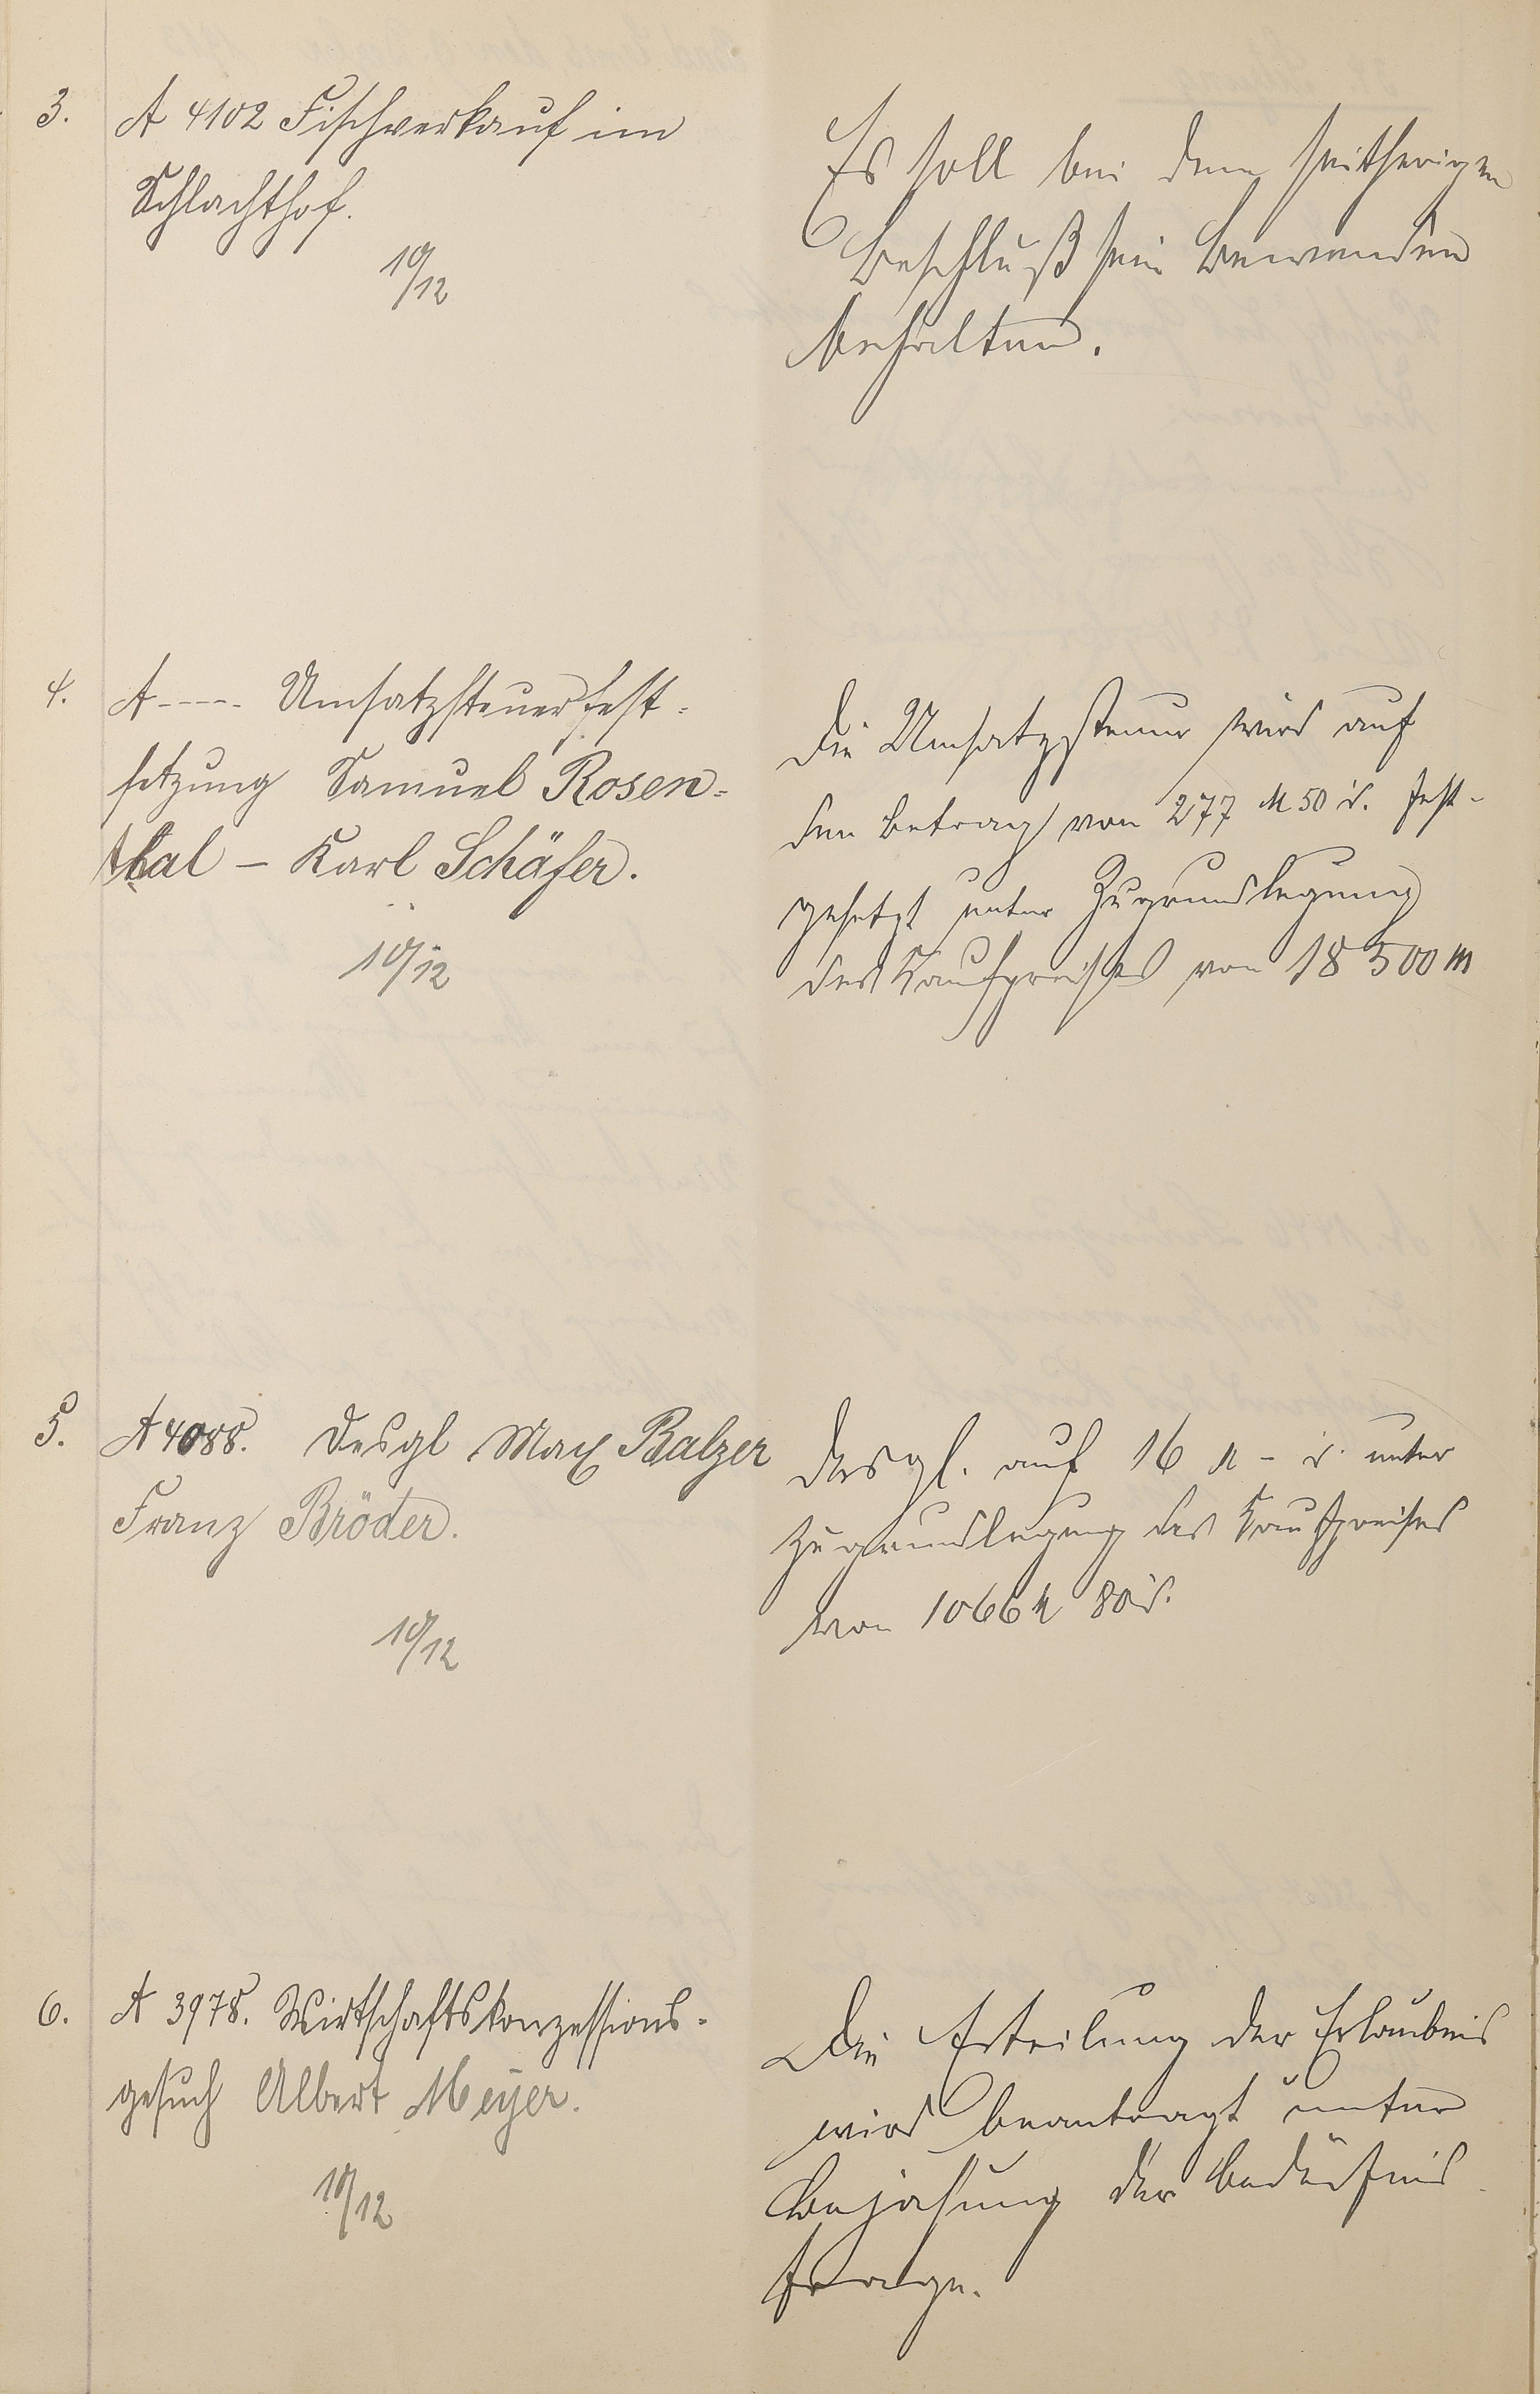 3. A 4102 Fischverkauf im
Schlachthof.
10/12
Es soll bei dem seitherigen
Beschluß sein Bewenden
behalten.
4. A----- Umsatzsteuerfest-
setzung Samuel Rosen-
thal – Karl Schäfer.
10/12
Die Umsatzsteuer wird auf
den Betrag von 277 M 50 d. fest-
gesetzt unter Zugrundlegung
des Kaufpreises von 18500 M
5. A 4088. Desgl Max Balzer
Franz Bröder.
10/12
Desgl. auf 16 M - d. unter
Zugrundlegung des Kaufpreises
von 1066 M 80 d.
6. A 3978. Wirtschaftskonzessions-
gesuch Albert Meyer.
10/12
Die Erteilung der Erlaubnis
wird beantragt unter
Bejahung der Bedürfnis
frage.